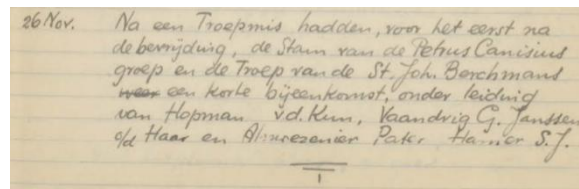 26 Nov. Na een Troepmis hadden, voor het eerst na
de bevrijding, de Stam van de Petrus Canisius
groep en de Troep van de St. Joh. Berchmans
weer een korte bijeenkomst, onder leiding
van Hopman v.d. Kun, Vaandrig G. Janssen
o/d Haar en Almoezenier Pater S.J.
1